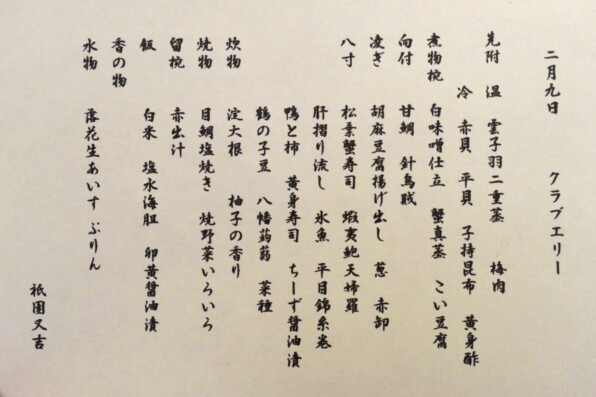 二月九日　クラブエリー
先附　温　雲子羽二重蒸　梅肉
冷　赤貝　平貝　子持昆布　黄身酢
煮物椀　白味噌仕立　蟹真蒸　こい豆腐
向付　甘鯛　針烏賊
凌ぎ　胡麻豆腐揚げ出し　葱　赤卸
八寸　松葉蟹寿司　蝦夷鮑天婦羅
肝摺り流し　氷魚　平目錦糸巻
鴨と柿　黄身寿司　ちーず醤油漬
鶴の子豆　八幡蒟蒻　菜種
炊物　淀大根　柚子の香り
焼物　目鯛塩焼き　焼野菜いろいろ
留椀　赤出汁
飯　白米　塩水海胆　卵黄醤油漬
香の物
水物　落花生あいす　ぷりん
祇園又吉